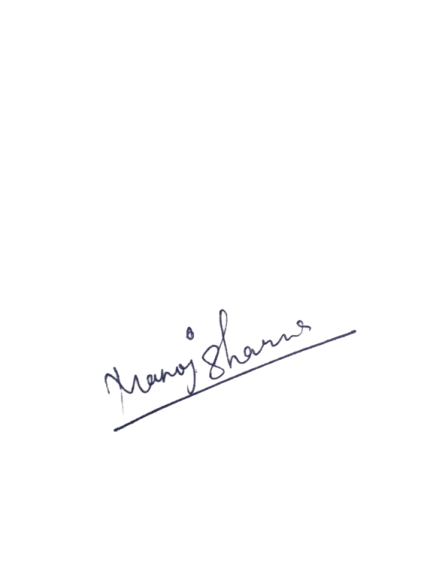 Manoj Sharma